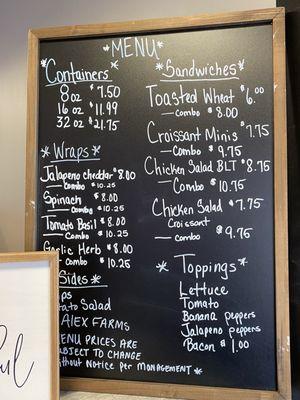 *MENU*
*Containers*
8 oz $7.50
16 oz $11.99
32 oz $21.75
*Wraps*
Jalapeno cheddar $8.00
— Combo $10.25
Spinach $8.00
— Combo $10.25
Tomato Basil $8.00
— Combo $10.25
Garlic Herb $8.00
Combo $10.25
Sides*
Salad
ALEX FARMS
MENU PRICES ARE
SUBJECT TO CHANGE
without Notice per MANAGEMENT*
*Sandwiches*
Toasted Wheat $6.00
— Combo $8.00
Croissant Minis $7.75
— Combo $9.75
Chicken Salad BLT $8.75
— Combo $10.75
Chicken Salad $7.75
Croissant
— Combo $9.75
*Toppings*
Lettuce
Tomato
Banana peppers
Jalapeno peppers
Bacon $1.00